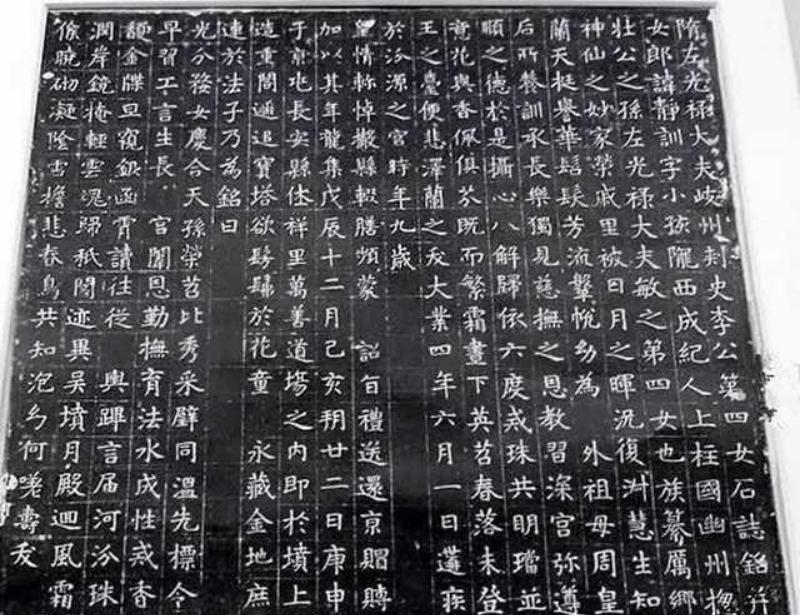 隋左光禄大夫岐州刺史李公第四女石誌銘并
女郎諱静訓字小孩隴西成紀人上柱國幽州揔
壯公之孫左光禄大夫敏之第四女也族纂厲鄉
神仙之妙家榮戚里被日月之暉況復淑慧生知
蘭天挺譽華髫髮芳流鞶帨幼為 外祖母周皇
后所養訓承長樂獨見慈撫之恩教習深宫弥遵
順之德於是攝心八解歸依六度戒珠共明璫並
意花與香佩俱芬既而繁霜晝下英苕春落未登
玉之臺便悲澤蘭之夭大業四年六月一日遘疾
於汾源之宫時年九歲
皇情軫悼撤縣輟膳頻蒙 詔旨禮送還京賵賻
加以其年龍集戊辰十二月己亥朔廿二日庚申
于京兆長安縣休祥里萬善道塲之内即於墳上
造重閣遥追寶塔欲髣髴於花童 永藏金地庶
連於法子乃為銘曰
光分婺女慶合天孫榮苕比秀采璧同温先標令
早習工言生長 宫闈恩勤撫育法水成性戒香
馥金牒旦窺銀函霄讀往從 輿蹕言届河汾珠
潤岸鏡掩輕雲魂歸秖閣迹異吴墳月殿迴風霜
條曉砌凝陰雪檐悲春鳥共知泡幻何嗟壽夭